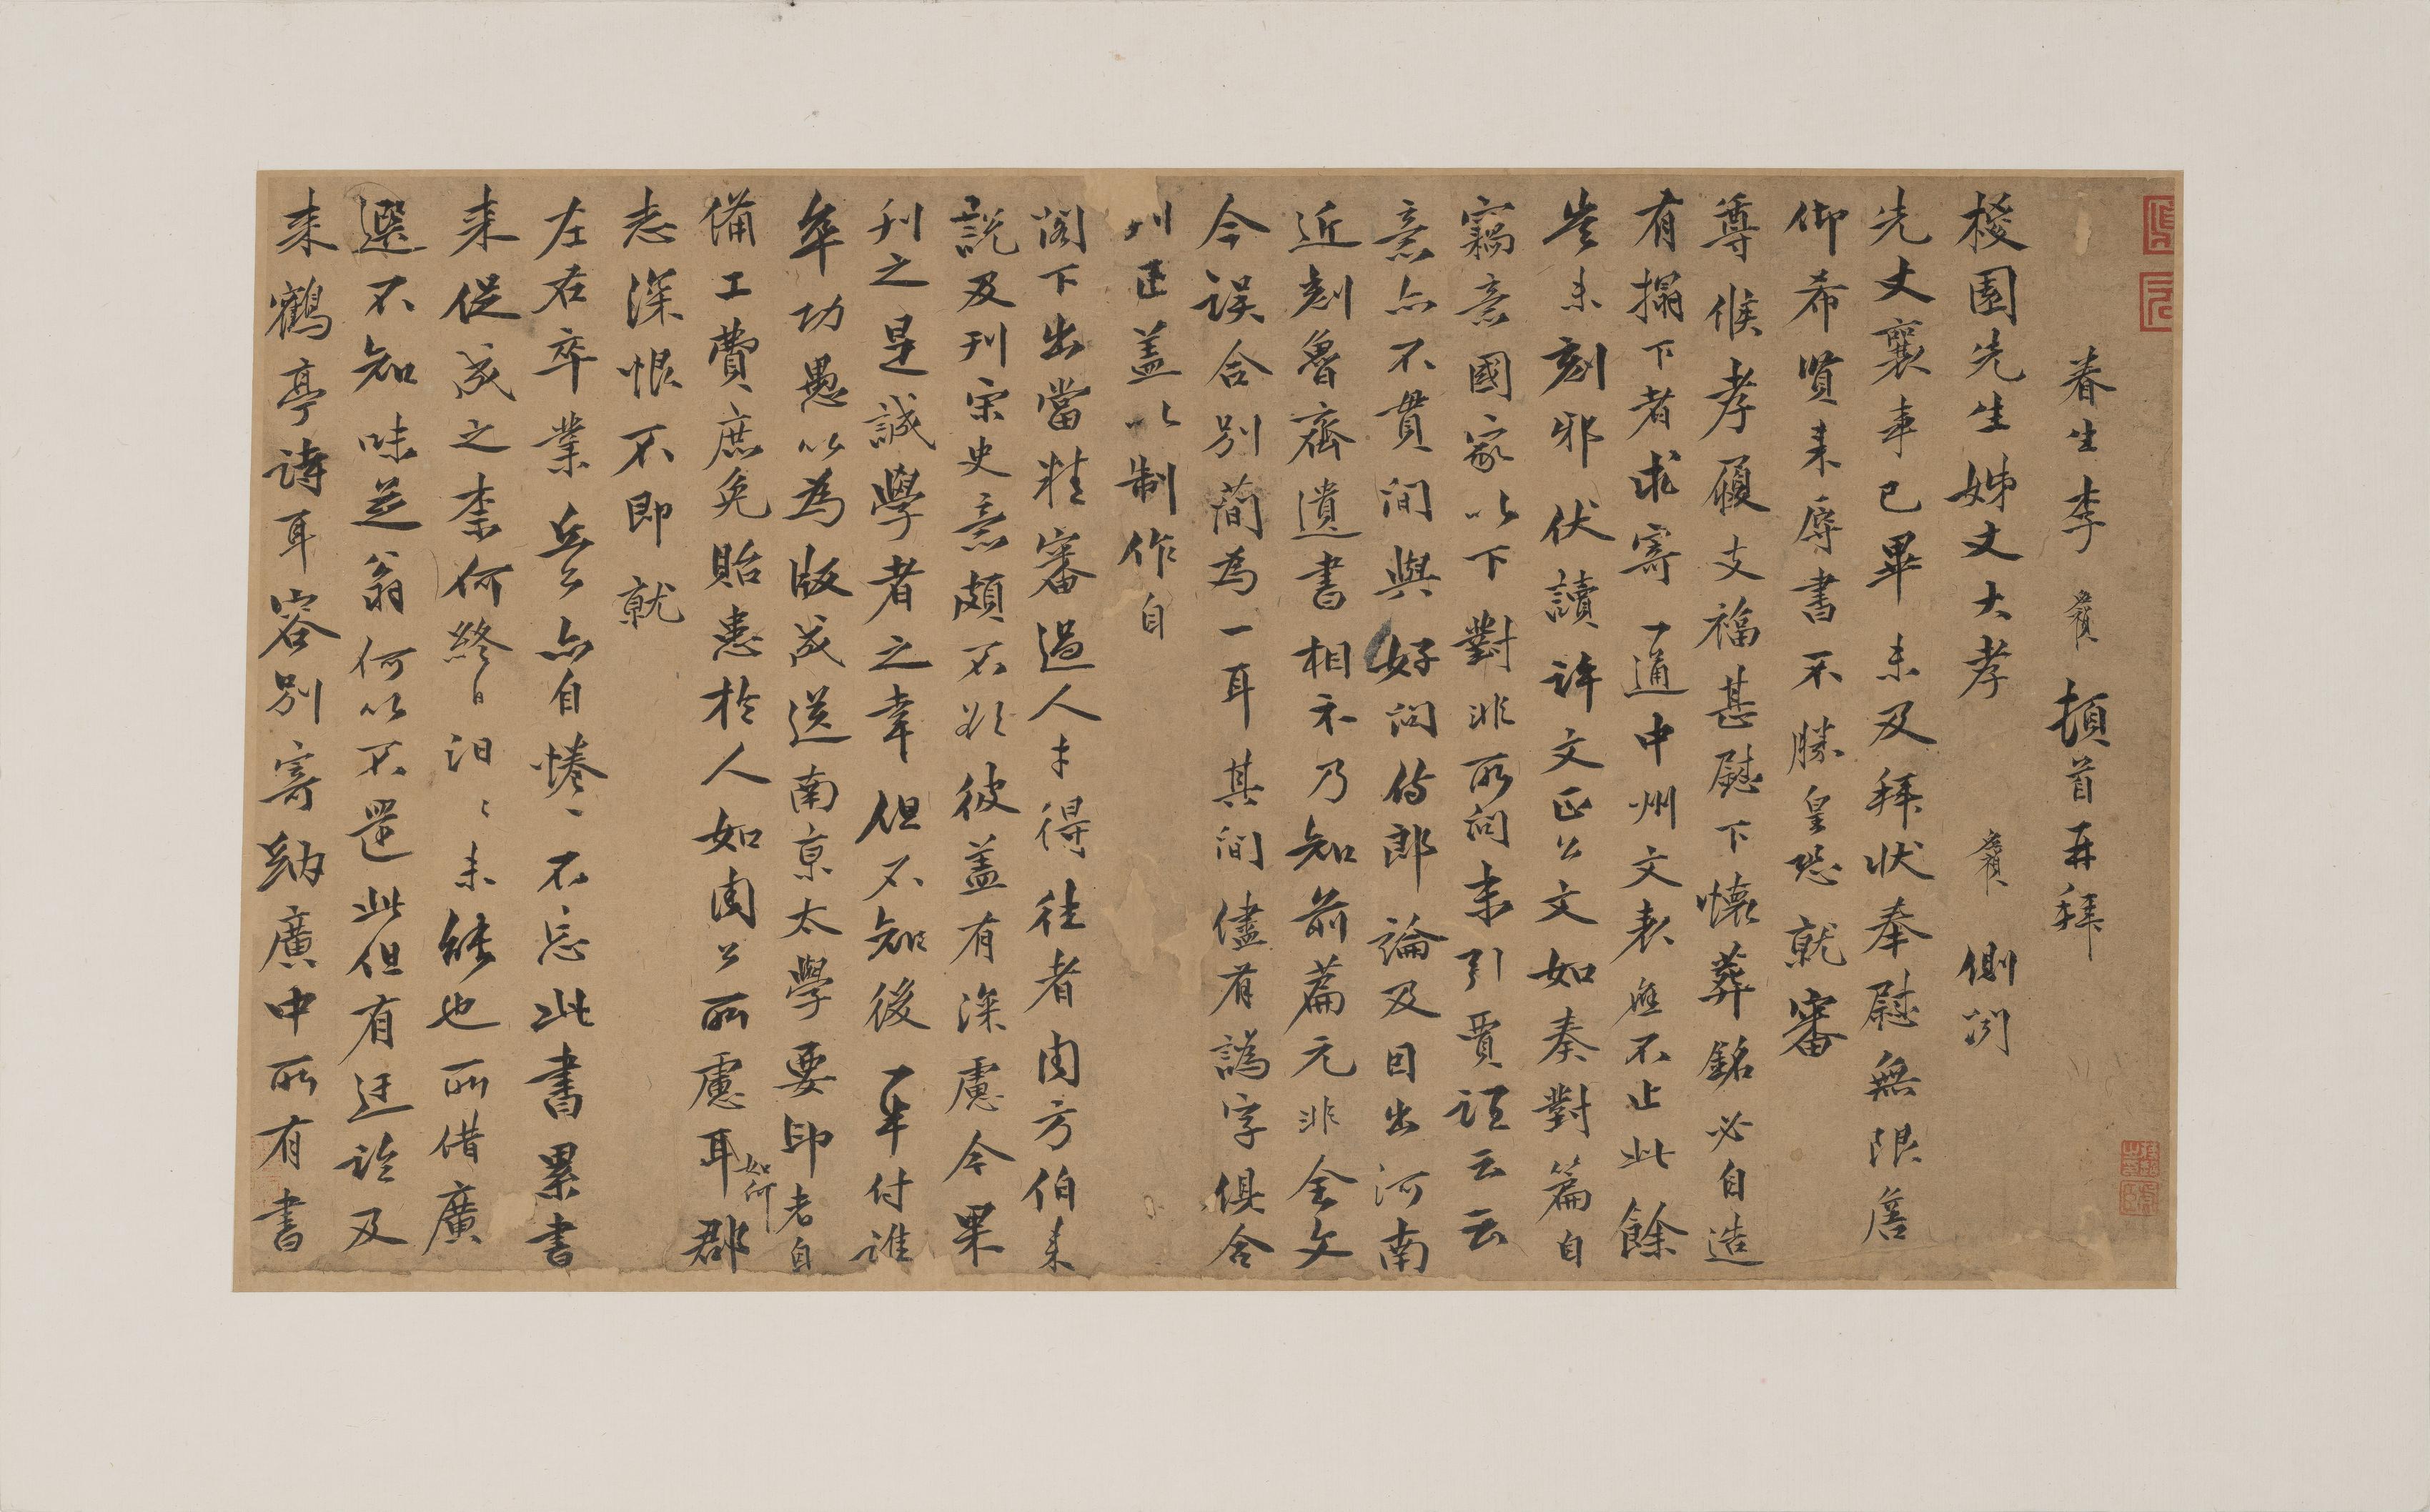 眷生李賓頓首再拜
梭園先生姊丈大孝賓側聞
先丈襄事已畢未及拜狀奉慰無限詹
仰希賢來辱書不勝皇恐就審
尊候孝履支福甚慰下懷葬銘必自造
有搨下者求寄一通中州文表應不止此餘
豈未刻邪伏讀許文正公文如奏對篇自
竊意國家以下對非所問末引賈誼云云
意亦不貫間與好問侍郎論及因出河南
近刻魯齋遺書相示乃知前篇元非全文
今誤合別簡為一耳其間儘有譌字俱合
刊正蓋以制作自
閣下出當精審過人才得往者周方伯來
說及刊宋史意頗不欲彼蓋有深慮今果
刊之是誠學者之幸但不知後一半付誰
卒功愚以為版成送南京太學要印者自
備工費庶免貽患於人如周公所慮耳如何郡
志深恨不即就
左右卒業岳公亦自惓惓不忘此書累書
來促成之柰何終日汩汩未能也所借廣
選不知味芝翁何以不還此但有廷論及
來鶴亭詩耳容別寄納廣中所有書